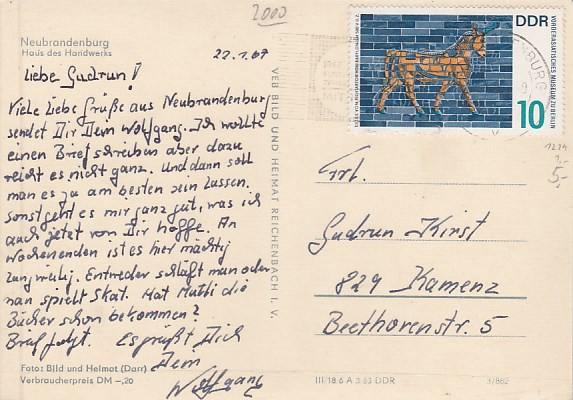 2000
Neubrandenburg
Haus des Handwerks
22.1.67
Liebe Gudrun!
Viele liebe Grüße aus Neubrandenburg
sendet Dir Dein Wolfgang. Ich wollte
einen Brief schreiben aber dazu
reicht es nicht ganz. Und dann soll
man es ja am besten sein lassen.
Sonst geht es mir ganz gut, was ich
auch jetzt von Dir hoffe. An
Wochenenden ist es hier mächtig
langweilig. Entweder schläft man oder
man spielt Skat. Hat Mutti die
Bücher schon bekommen?
Brief folgt. Es grüßt Dich
Dein
Wolfgang
Foto: Bild und Heimat (Darr)
Verbraucherpreis DM -,20
VEB BILD UND HEIMAT REICHENBACH I. V.
DDR
VORDERASIATISCHES MUSEUM ZU BERLIN
10
5,-
Frl.
Gudrun Kirst
829 Kamenz
Beethovenstr. 5
III/18/6 A 3 63 DDR
3/862